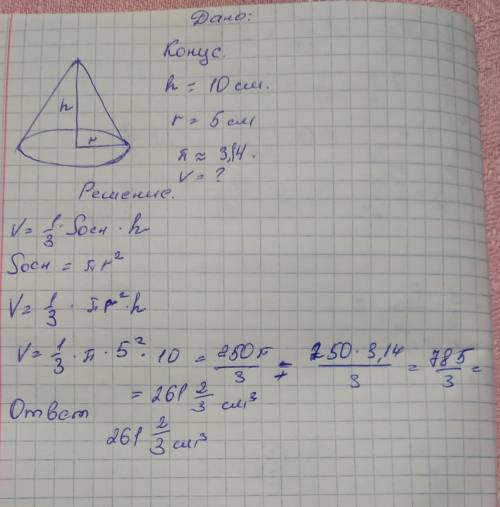 Дано:
Конус.
h = 10 см.
r = 5 см
π ≈ 3,14.
V = ?
h
r
Решение.
V = 1/3 · Sосн · h
Sосн = πr²
V = 1/3 · πr² · h
V = 1/3 · π · 5² · 10 = 250π/3 = 250 · 3,14/3 = 785/3 =
= 261 2/3 см³
Ответ
261 2/3 см³